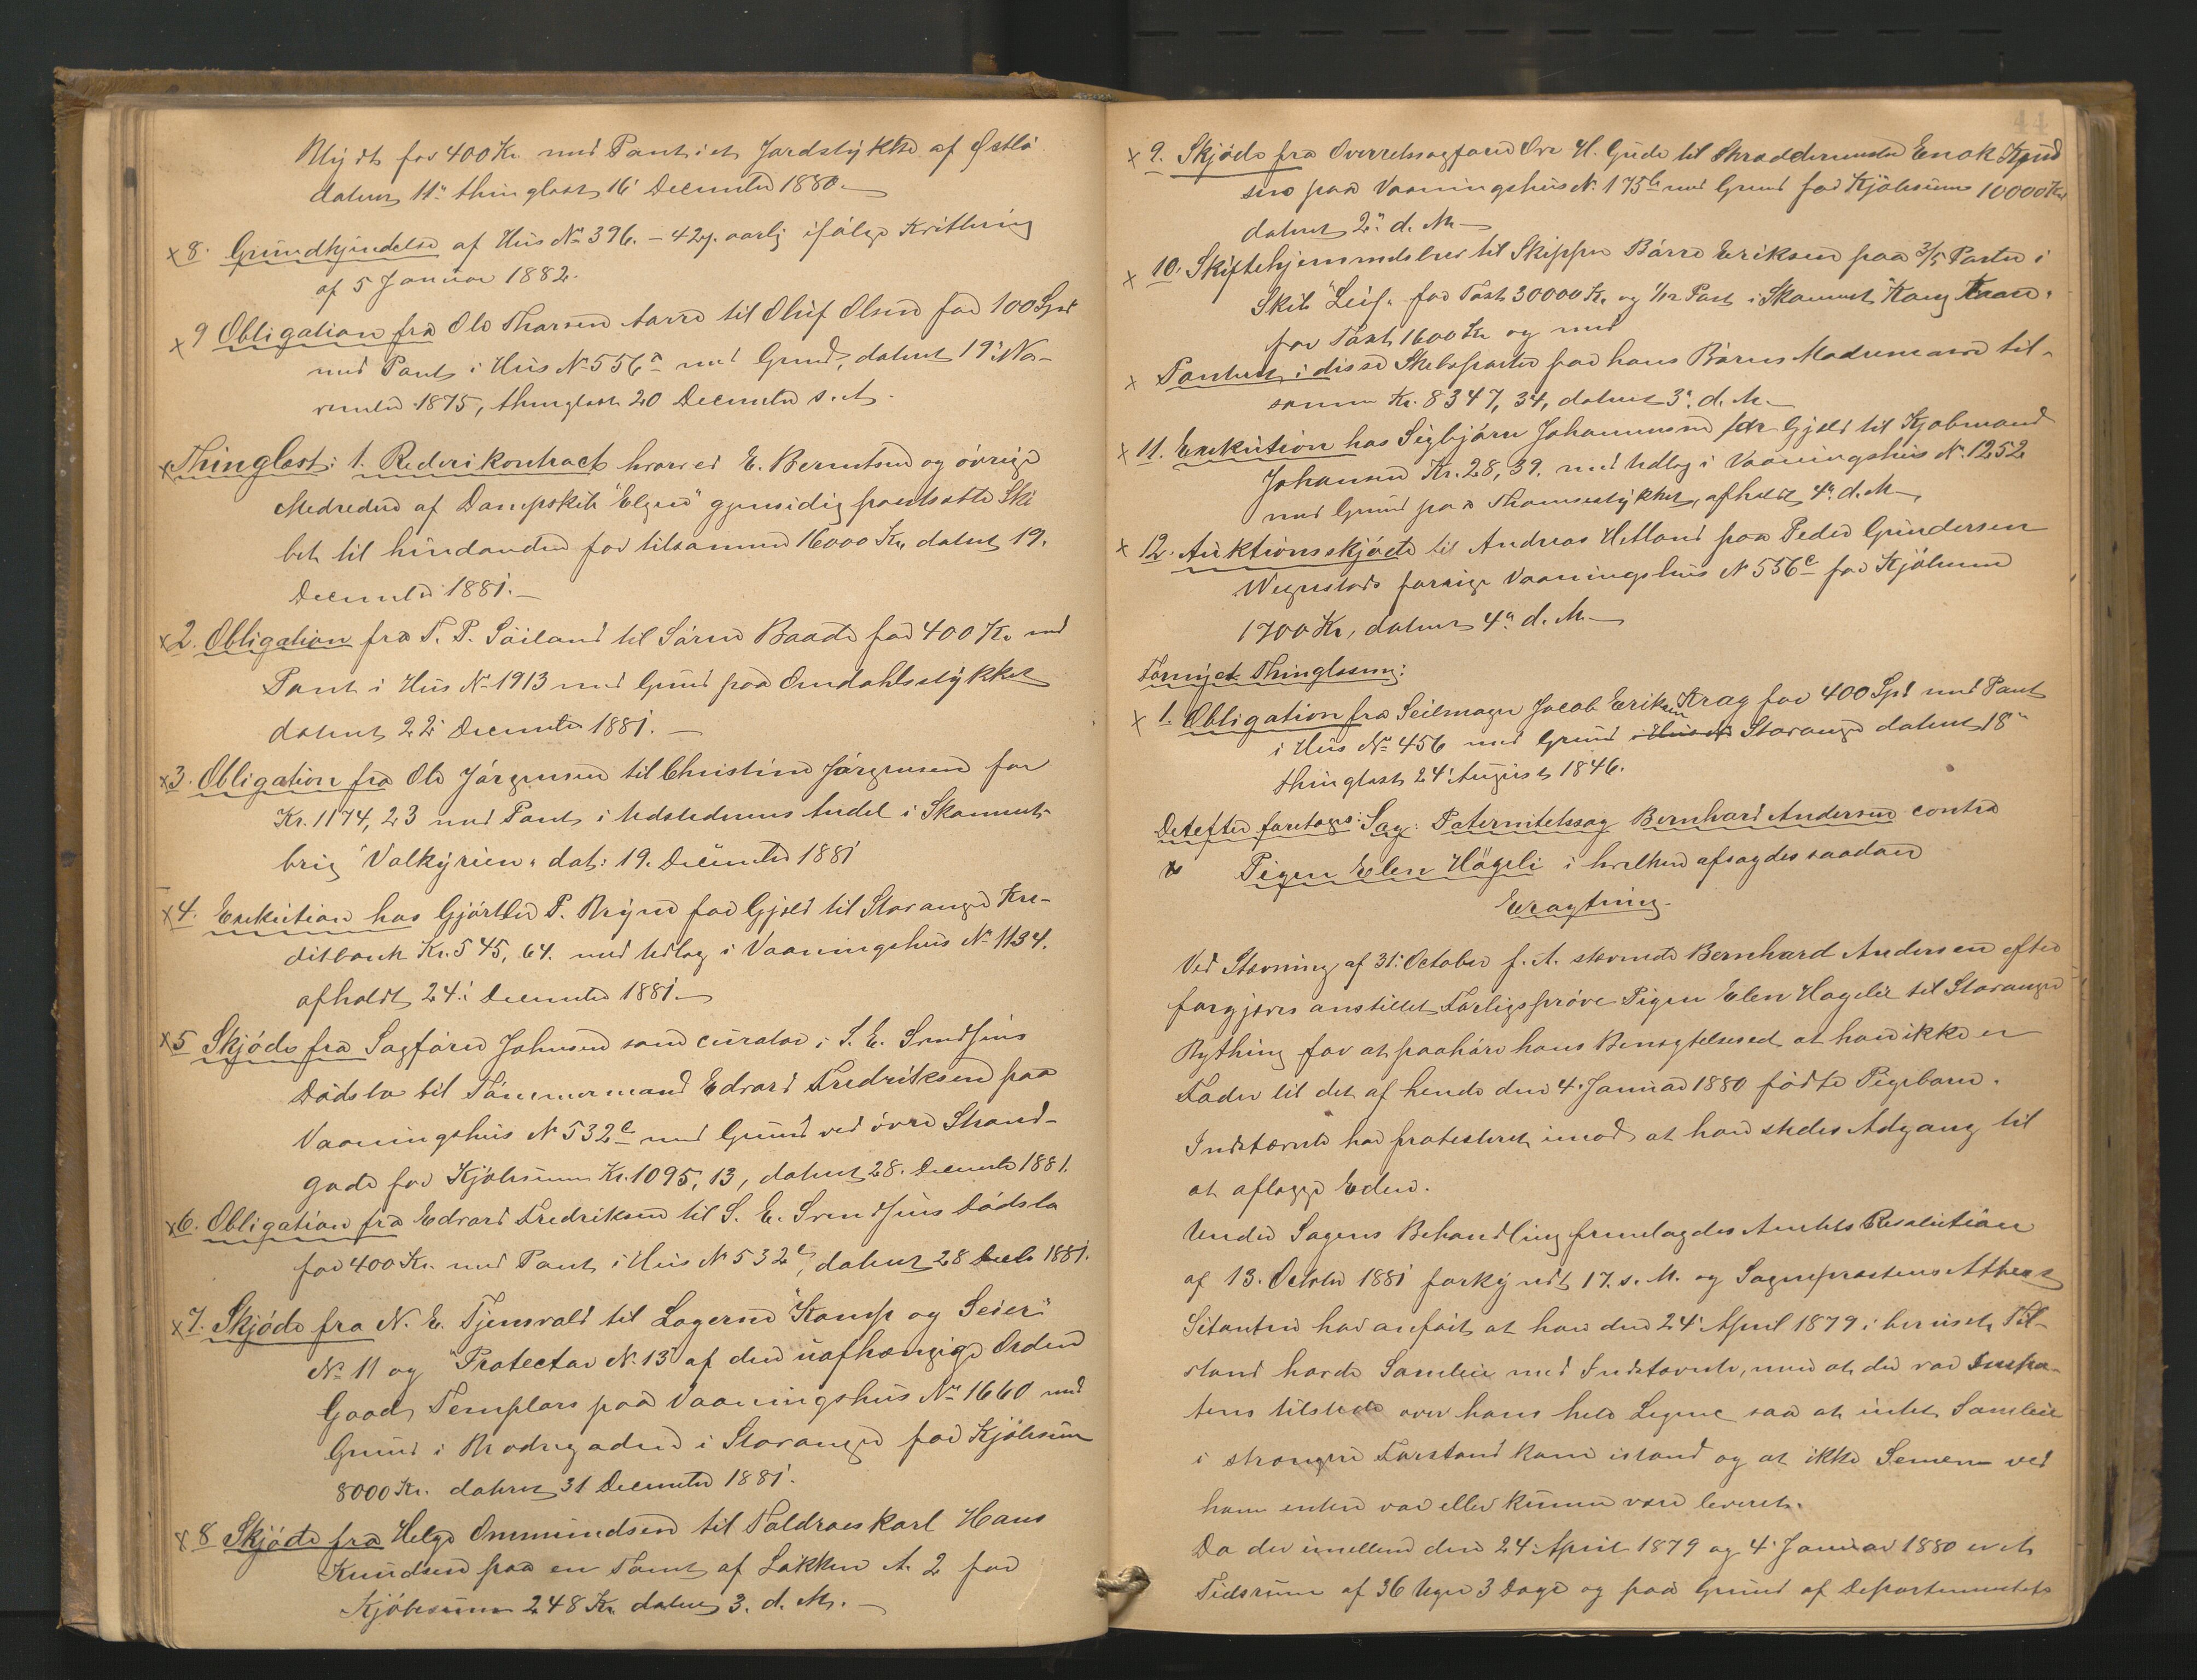 for 400 Kr. med Pant i et Jordstykke af Østbø
datert 11te thinglæst 16' December 1880.
x 8. Grundkjendelse af Hus No 396. - 42 . aarlig ifølge Kvittering
af 5 Januar 1882.
x 9 Obligation fra Ole Thorsen til Oluf Olsen for 100 Spd
med Pant i Hus No 556a med Grund, datert 19' No-
vember 1875, thinglæst 20 December s. A.
x Thinglæst: 1. Rederikontract hvorved E. Berentsen og øvrige
Medredere af Dampskib "Elgen" gjensidig pantsætte Ski
bet til hinanden for tilsammen 16000 Kr. datert 19.
December 1881.
x 2. Obligation fra T. P. Soiland til Sören Baade for 400 Kr. med
Pant i Hus No 1913 med Grund paa Omdahlsstykket
datert 22' December 1881.
x 3. Obligation fra Ole Jörgensen til Christine Jörgensen for
Kr. 1174, 23 med Pant i Udstederens Andel i Skonnert-
brig "Valkyrien" dat: 19. December 1881
x 4. Exekution hos Gjörtler P. Bryne for Gjæld til Stavanger Kre-
ditbank Kr. 545, 64. med Udlæg i Vaaningshus No 1134.
afholdt 24' December 1881.
x 5 Skjöde fra Sagförer Johnsen som curator i S. E. Svendsens
Dödsbo til Tömmermand Edvard Fredriksen paa
Vaaningshus No 532c med Grund ved övre Strand-
gade for Kjöbesum Kr. 1095, 13, datert 28. December 1881.
x 6. Obligation fra Edvard Fredriksen til S. E. Svendsens Dödsbo
for 400 Kr. med Pant i Hus No 532c, datert 28 Decb 1881.
x 7. Skjöde fra N. E. Tjensvold til Logerne "Kamp og Seier"
No 11 og "Protector No 13" af den uafhængige Orden
Good Templars paa Vaaningshus No 1660 med
Grund i Brodregaden i Stavanger for Kjöbesum
8000 Kr. datert 31 December 1881.
x 8 Skjöde fra Helge Ommundsen til Toldroeskarl Hans
Knudsen paa en Tomt af Løkken A. 2 for
Kjöbesum 248 Kr. datert 3. d. M.
44
x 9. Skjöde fra Overretssagförer Ove H. Gude til Skræddermester Enok Knud
sen paa Vaaningshus No 175b med Grund for Kjöbesum 10000 Kr
datert 2' d. M.
x 10. Skiftehjemmelsbrev til Skipper Börre Eriksen paa 3/5 Parter i
Skib "Leif" for Taxt 30000 Kr. og 1/12 Part i Skonnert "Kong Kaare"
for Taxt 1600 Kr og med
x Panteret i disse Skibsparter for hans Börns Mødremarv til-
sammen Kr. 8347, 34, datert 3' d. M.
x 11. Exekution hos Sigbjörn Johannesen for Gjæld til Kjøbmand
Johansen Kr. 28, 39. med Udlæg i Vaaningshus No 1252
med Grund paa Thomsestykket, afholdt 4' d. M.
x 12. Auktionsskjöde til Andreas Helland paa Peder Gundersen
forrige Vaaningshus No 556c for Kjöbesum
1700 Kr, datert 4' d. M.
Fornyet Thinglæsning:
x 1. Obligation fra Seilmager Jacob Eriksen Krag for 400 Spd med Pant
i Hus No 456 med Grund i Hus No Stavanger datert 18'
thinglæst 24' August 1846.
Derefter foretages: Sag: Paternitetssag Bernhard Andersen contra
x Pigen Elen Högeli i hvilken afsagdes saadan
Eragtning.
Ved Stævning af 31' October f. A. stævnede Bernhard Andersen efter
forgjæves anstillet Forligsprøve Pigen Elen Hogelie til Stavanger
Bything for at paahøre hans Benægtelsesed at han ikke er
Fader til det af hende den 4' Januar 1880 födte Pigebarn.
Indstævnte har protesteret imod at han stedes Adgang til
at aflægge Eden.
Under Sagens Behandling fremlagdes Amtets Resolution
af 13. October 1881 forkyndt 17. s. M. og Sognepræstens Attest
Citanten har anført at han den 24' April 1879 i beruset Til-
stand havde Samleie med Indstævnte, men at der var
tilstede over hans hele Legeme saa at intet Samleie
i strengere Forstand kom istand og at ikke Semen ved
ham enten var eller kunne være leveret.
Da der imellem den 24' April 1879 og 4' Januar 1880 er et
Tidsrum af 36 Uger 3 Dage og paa Grund af Departementets